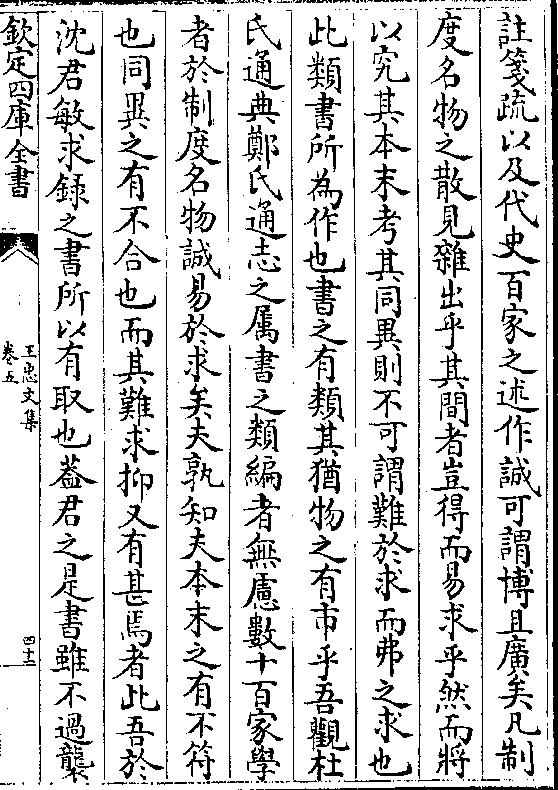 註箋疏以及代史百家之述作誠可謂博且廣矣凡制
度名物之散見雜出乎其間者豈得而易求乎然而將
以究其本末考其同異則不可謂難於求而弗之求也
此類書所為作也書之有類其猶物之有市乎吾觀杜
氏通典鄭氏通志之属書之類編者無慮數十百家學
者於制度名物誠易於求矣夫孰知夫本末之有不符
也同異之有不合也而其難求抑又有甚焉者此吾於
沈君敏求録之書所以有取也葢君之是書雖不過襲
欽定四庫全書
王忠文集
卷五
四十二